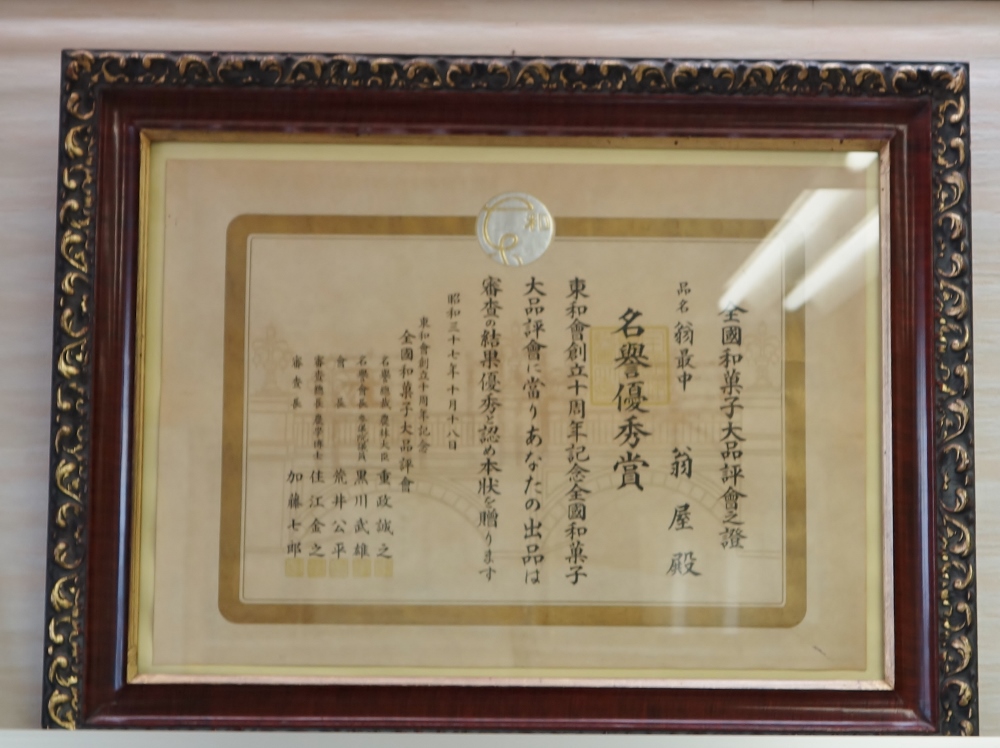 全國和菓子大品評會之證
品名 翁最中 翁屋殿
名譽優秀賞
東和會創立十周年記念全國和菓子
大品評會に當りあなたの出品は
審査の結果優秀と認め本狀を贈ります
昭和三十七年十月十八日
東和會創立十周年記念
全國和菓子大品評會
名譽總裁 農林大臣 重政誠之
名譽會長 參議院議員 黑川武雄
會長 荒井公平
審査總長 農學博士 住江金之
審査長 加藤七郎